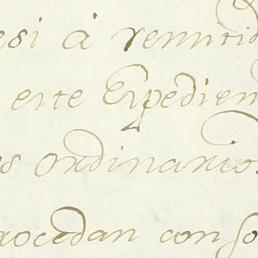 esi á remitid
este Expedien
s ordinarios
rocedan con so